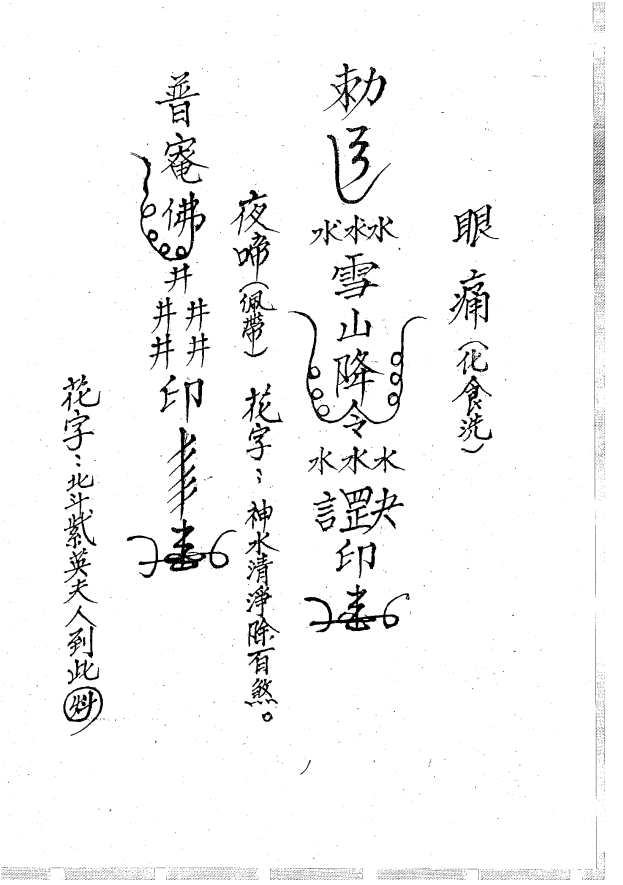 眼痛（化食洗）
勅
水水水
雪山降令
水水水
罡
印
花字：神水清淨除百煞。
夜啼（佩帶）
普庵佛
井
井井
井井
印
花字：北斗紫英夫人到此